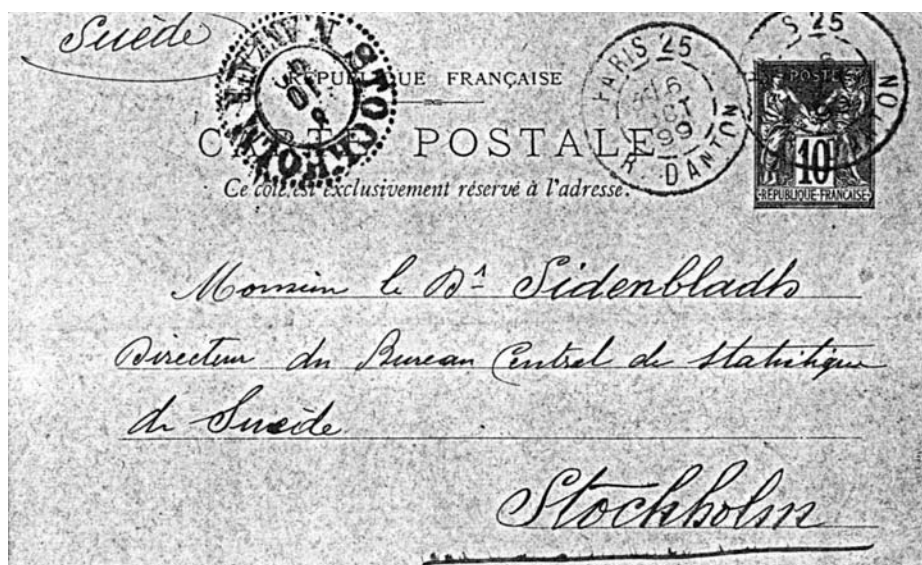 Suède
RÉPUBLIQUE FRANÇAISE
CARTE POSTALE
Ce côté est exclusivement réservé à l'adresse.
PARIS 25
6
OCT
99
R. DANTON
S 25
ANTON
POSTE
10
RÉPUBLIQUE FRANÇAISE
STOCKHOLM 1 AVA
10
Monsieur le Dr Sidenbladh
Directeur du Bureau Central de Statistique
de Suède
Stockholm